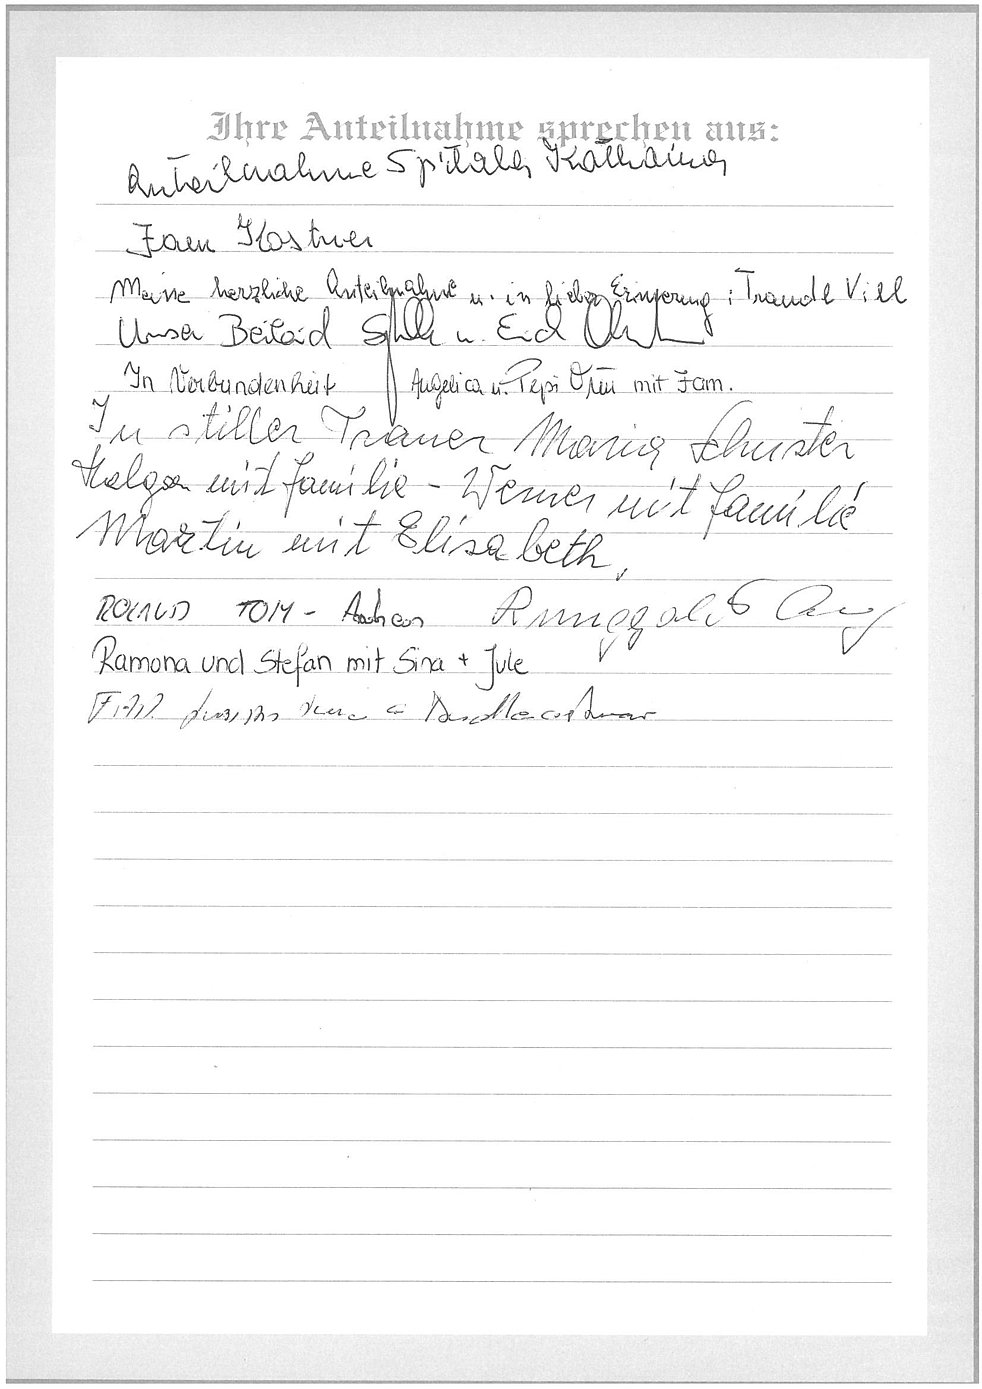 Ihre Anteilnahme sprechen aus:
Anteilnahme Spitaler Katharina
Fam Kostner
Meine herzliche Anteilnahme u. in lieber Erinnerung: Traudl Vill
Unser Beileid u. Erich
In Verbundenheit Angelica u. Pepi mit Fam.
In stiller Trauer Maria Schuster
Helga mit Familie - Werner mit Familie
Martin mit Elisabeth,
ROLAND TOM - Andreas Runggaldi
Ramona und Stefan mit Sina + Jule